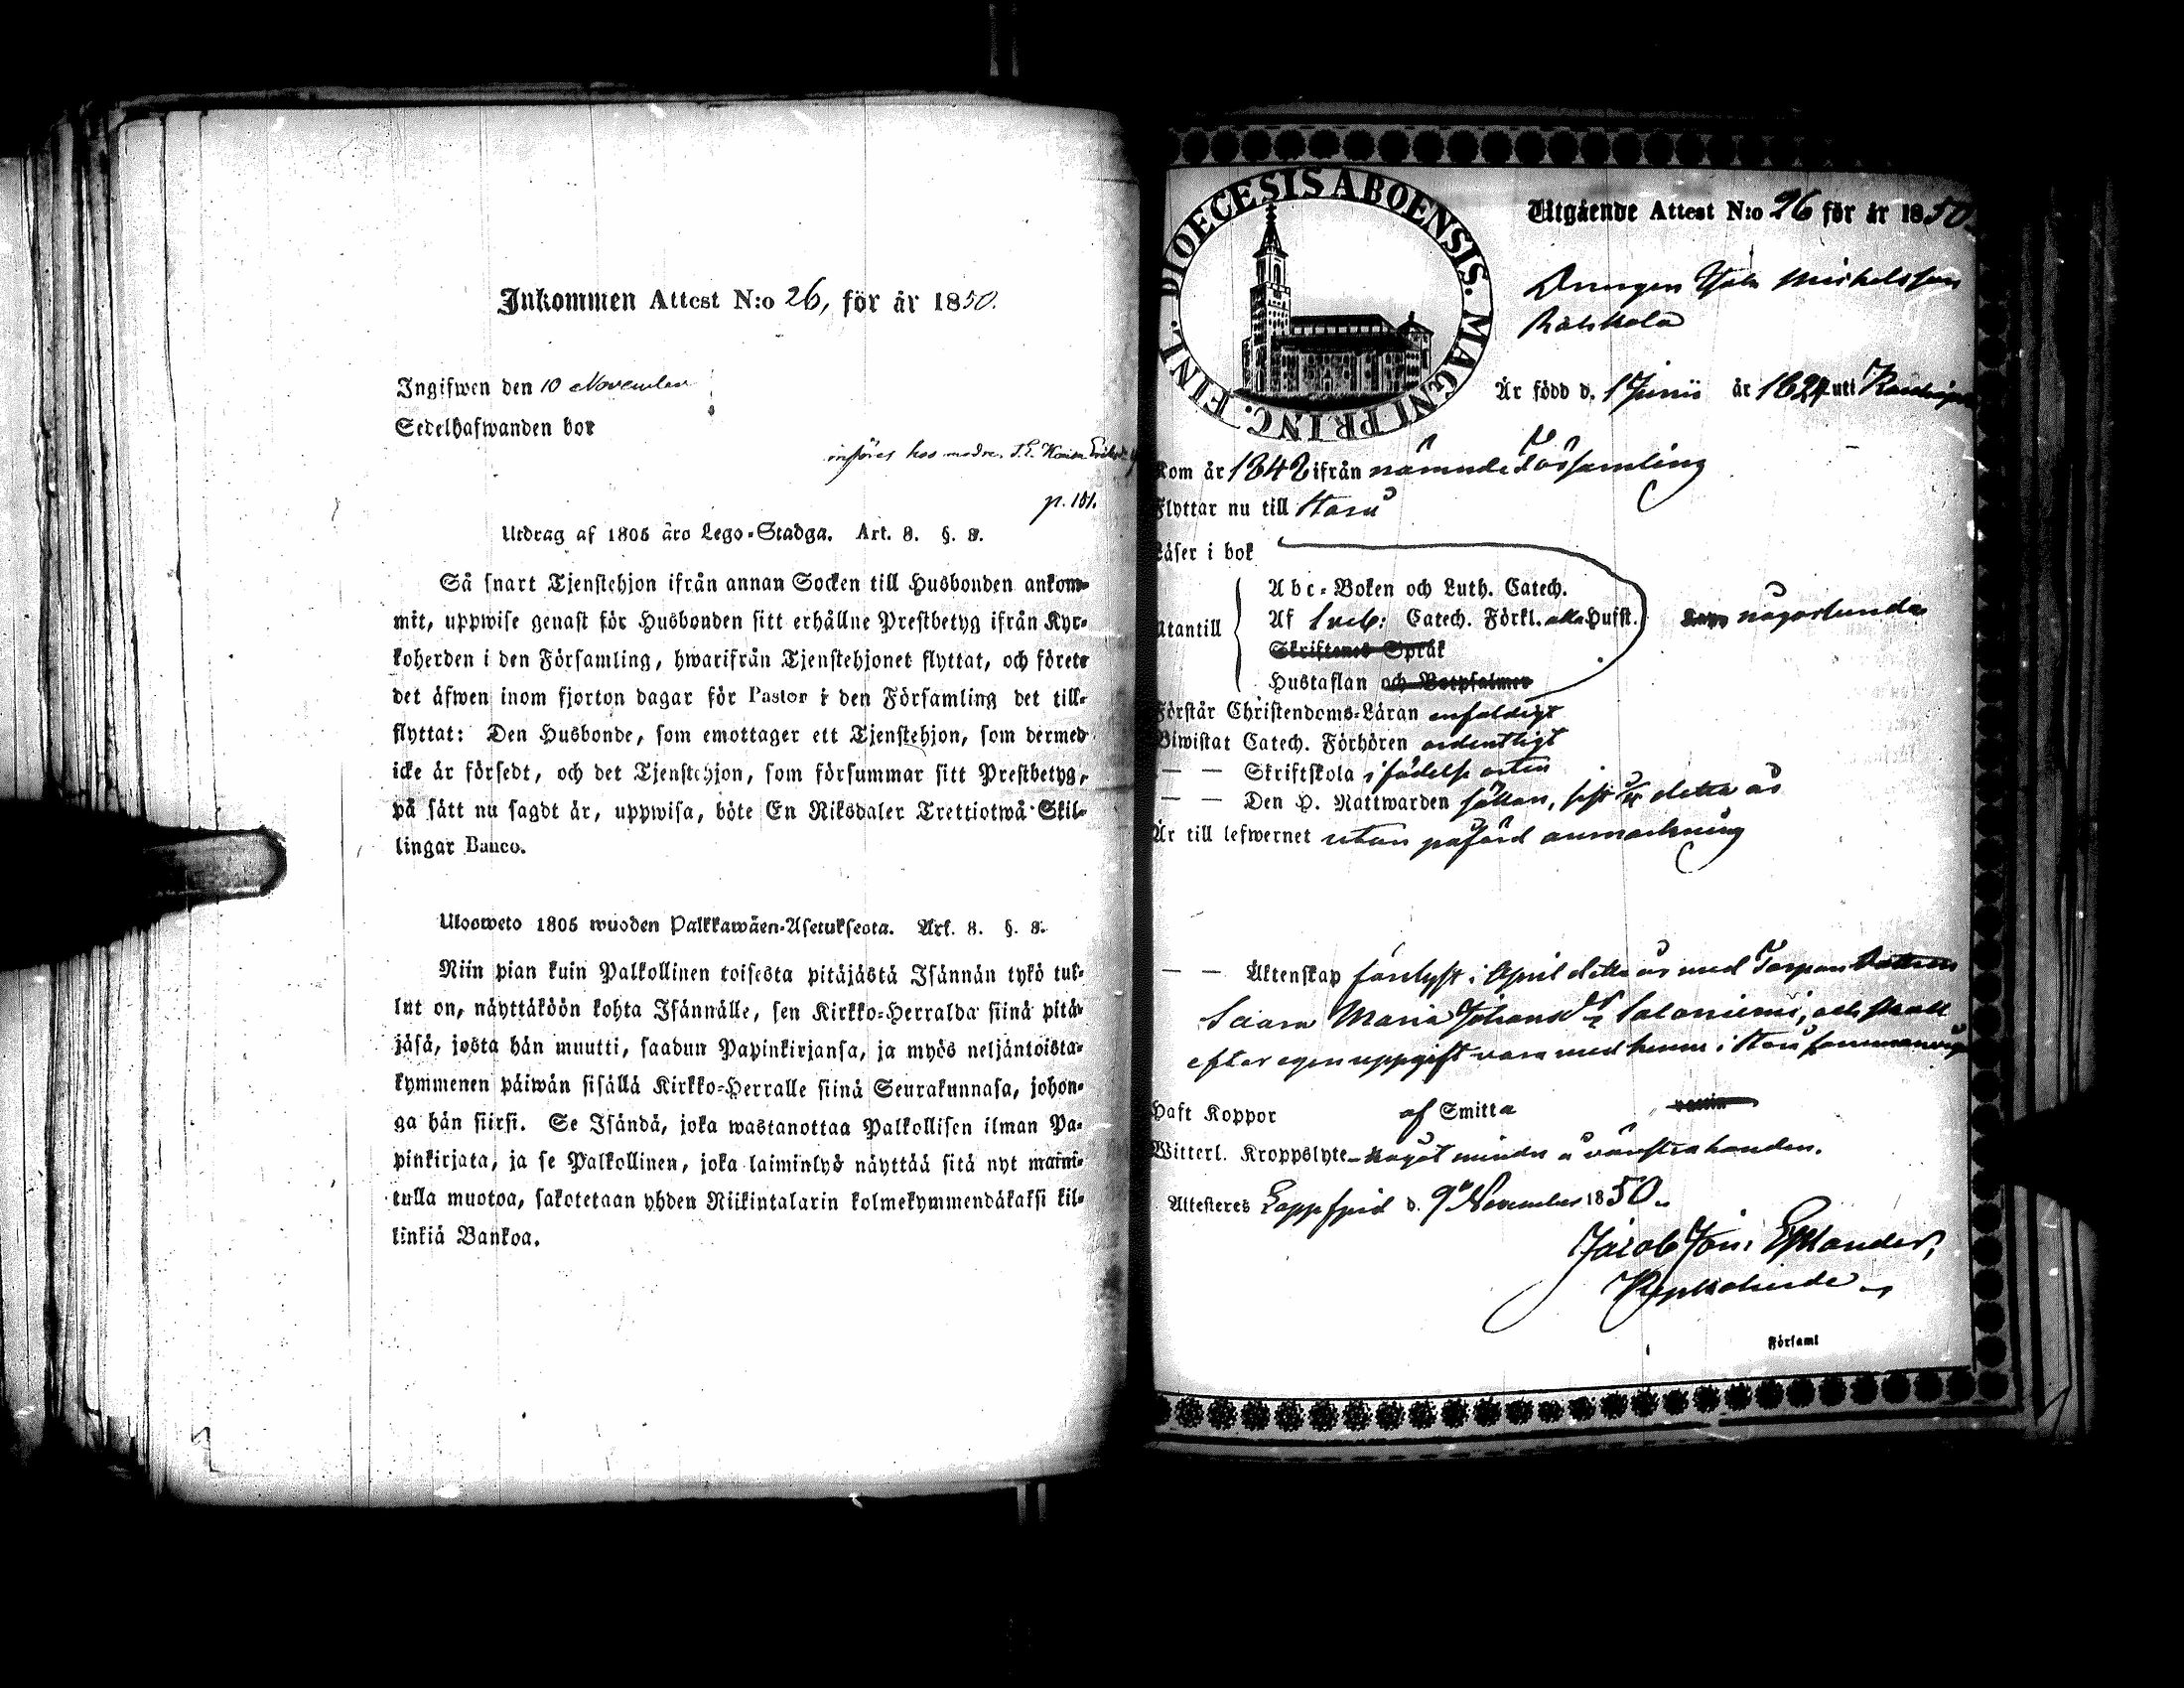 Inkommen Attest N:o 26, för år 1850.
Ingifwen den 10 November
Sedelhafwanden bor
införes hos modren
p. 101.
Utdrag af 1805 åro Lego-Stadga. Art. 8. §. 8.
Så snart Tjenstehjon ifrån annan Socken till Husbonden ankom-
mit, uppwise genast för Husbonden sitt erhållne Prestbetyg ifrån Kyr-
koherden i den Församling, hwarifrån Tjenstehjonet flyttat, och förete
det äfwen inom fjorton dagar för Pastor i den Församling det till-
flyttat: Den Husbonde, som emottager ett Tjenstehjon, som dermed
icke är försedt, och det Tjenstehjon, som försummar sitt Prestbetyg,
på sätt nu sagdt är, uppwisa, böte En Riksdaler Trettiotwå Skil-
lingar Banco.
Ulosweto 1805 wuoden Palkkawäen-Asetuksesta. Art. 8. §. 8.
Niin pian kuin Palkollinen toisesta pitäjästä Isännän tykö tul-
lut on, näyttäköön kohta Isännälle, sen Kirkko-Herralda siinä pitä-
jäsä, josta hän muutti, saadun Papinkirjansa, ja myös neljäntoista-
kymmenen päiwän sisällä Kirkko-Herralle siinä Seurakunnasa, johon-
ga hän siirsi. Se Isändä, joka wastanottaa Palkollisen ilman Pa-
pinkirjata, ja se Palkollinen, joka laiminlyö näyttää sitä nyt maini-
tulla muotoa, sakotetaan yhden Riikintalarin kolmekymmendäkaksi kil-
linkiä Bankoa.
DIOECESIS ABOENSIS. MAGNI PRINC. FINL.
Utgående Attest N:o 26 för år 1850.
Drängen Michelsson
Är född d. 1 Junii år 1824 uti
Kom år 1848 ifrån nämnde Församling
Flyttar nu till
Läser i bok
Utantill
Abc-Boken och Luth. Catech.
Af Sveb: Catech. Förkl. alla Hufst. någorlunda
Skriftenes Språk
Hustaflan och Botpsalmer
Förstår Christendoms-Läran enfaldigt
Biwistat Catech. Förhören ordentligt
— — Skriftskola i födelse orten
— — Den H. Nattwarden sällan, sist detta år
Är till lefwernet utan påförd anmärkning
— — Äktenskap förelyst i April detta år med Torpare
Saara Maria Johansdr Saloniemi, och skall
efter egen uppgift vara med henne i
Haft Koppor af Smitta
Witterl. Kroppslyte - något mindre å vänstra handen.
Attesteres Lappfjerd d. 9de November 1850.
Jacob Estlander,
Kyrkoherde
Församl